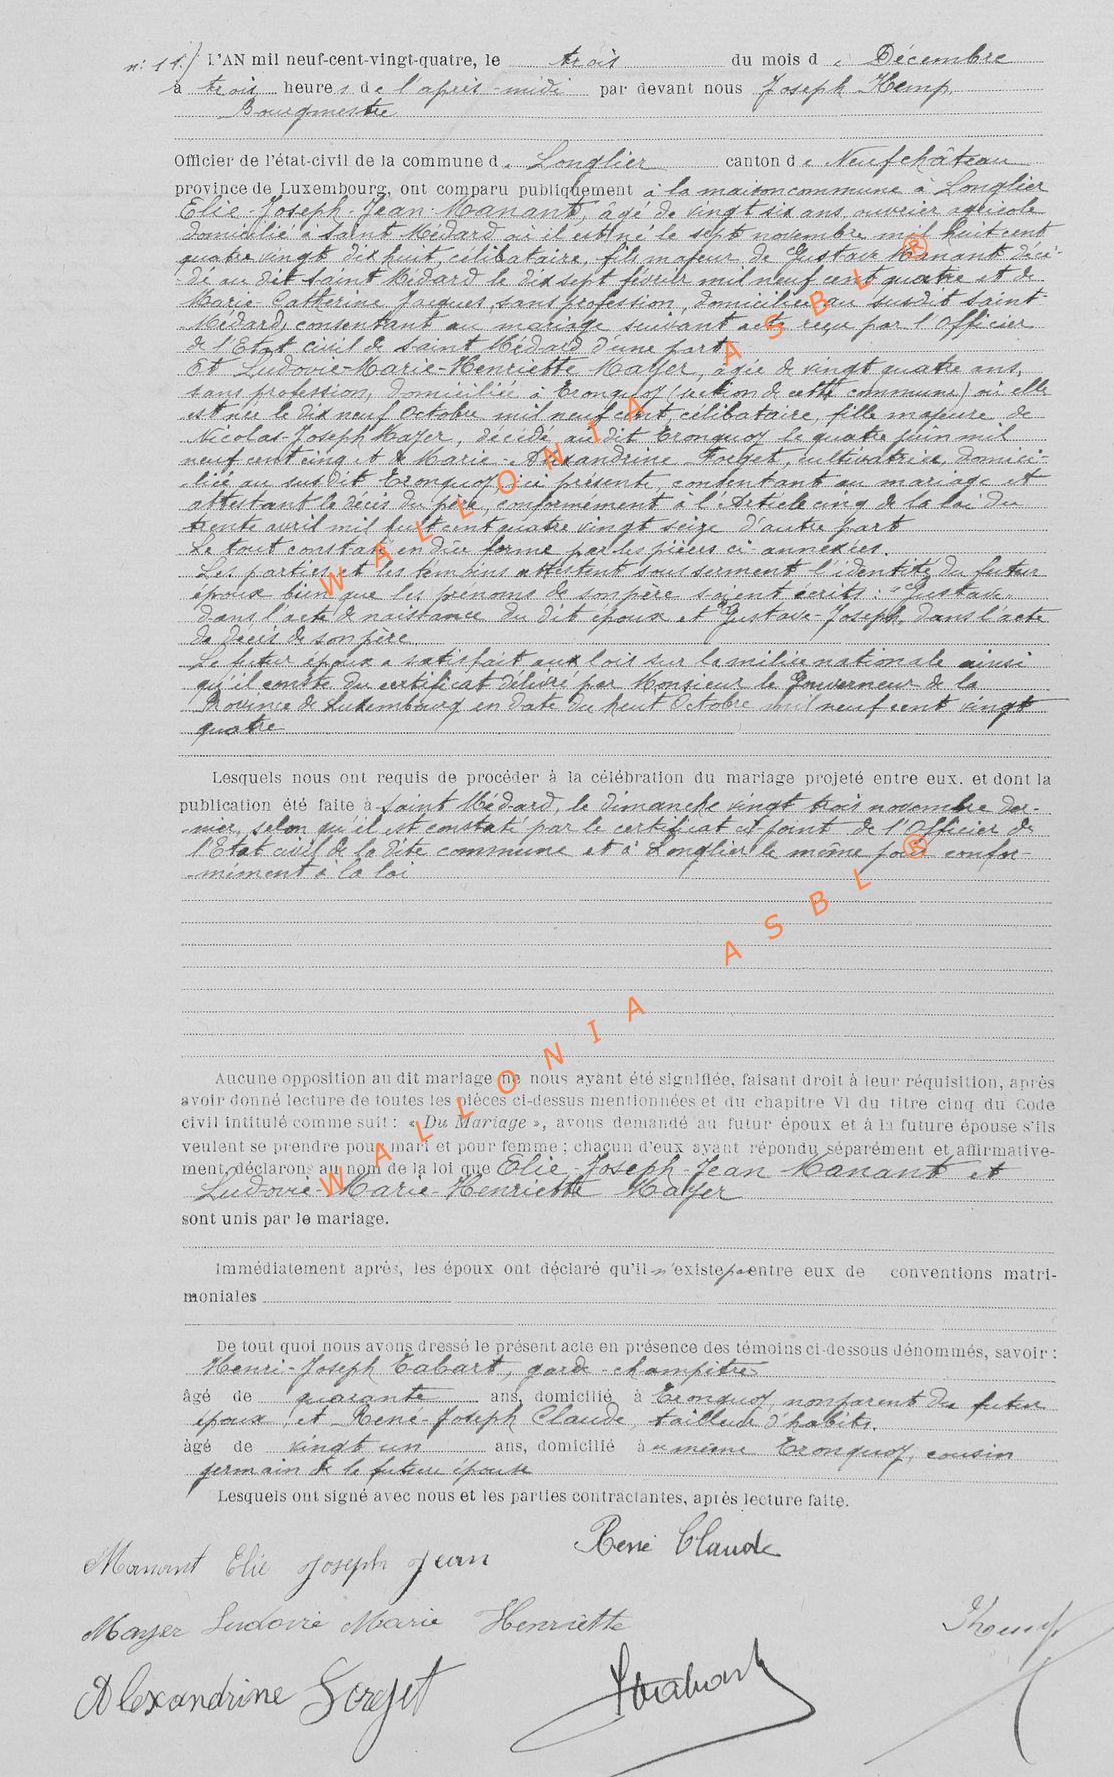 n: 11./ L'AN mil neuf-cent-vingt-quatre, le trois du mois d e Décembre
à trois heures de l'après-midi par devant nous Joseph Kemp,
Bourgmestre
Officier de l'état-civil de la commune d e Longlier canton d e Neufchâteau
province de Luxembourg, ont comparu publiquement à la maison commune à Longlier
Elie-Joseph-Jean Manant, âgé de vingt six ans, ouvrier agricole
domicilié à Saint Médard où il est né le sept novembre mil huit cent
quatre vingt dix huit, célibataire, fils majeur de Gustave Manant décé-
dé au dit Saint Médard le dix sept février mil neuf cent quatre et de
Marie Catherine Jacques, sans profession, domiciliée au susdit Saint
Médard, consentant au mariage suivant acte reçu par l'Officier
de l'Etat civil de Saint Médard d'une part
Et Ludovie-Marie-Henriette Mayer, âgée de vingt quatre ans,
sans profession, domiciliée à Tronquoy (section de cette commune) où elle
est née le dix neuf Octobre mil neuf cent, célibataire, fille majeure de
Nicolas-Joseph Mayer, décédé au dit Tronquoy le quatre juin mil
neuf cent cinq et de Marie-Alexandrine Forget, cultivatrice, domici-
liée au susdit Tronquoy ici présente, consentant au mariage et
attestant le décès du père, conformément à l'Article cinq de la loi du
trente avril mil huit cent quatre vingt seize d'autre part
Le tout constaté en due forme par les pièces ci-annexées.
Les parties et les témoins attestent sous serment l'identité du futur
époux bien que les prénoms de son père soient écrits: "Gustave"
dans l'acte de naissance du dit époux et "Gustave-Joseph" dans l'acte
de décès de son père
Le futur époux a satisfait aux lois sur la milice nationale ainsi
qu'il conste du certificat délivré par Monsieur le Gouverneur de la
Province de Luxembourg en date du huit Octobre mil neuf cent vingt
quatre
Lesquels nous ont requis de procéder à la célébration du mariage projeté entre eux. et dont la
publication été faite à Saint Médard, le dimanche vingt trois novembre der-
nier, selon qu'il est constaté par le certificat ci joint de l'Officier de
l'Etat civil de la dite commune et à Longlier le même jour confor-
mément à la loi
Aucune opposition au dit mariage ne nous ayant été signifiée, faisant droit à leur réquisition, après
avoir donné lecture de toutes les pièces ci-dessus mentionnées et du chapitre VI du titre cinq du Code
civil intitulé comme suit : « Du Mariage », avons demandé au futur époux et à la future épouse s'ils
veulent se prendre pour mari et pour femme ; chacun d'eux ayant répondu séparément et affirmative-
ment, déclarons au nom de la loi que Elie-Joseph-Jean Manant et
Ludovie-Marie-Henriette Mayer
sont unis par le mariage.
Immédiatement après, les époux ont déclaré qu'il n'existe pas entre eux de conventions matri-
moniales
De tout quoi nous avons dressé le présent acte en présence des témoins ci-dessous dénommés, savoir :
Henri-Joseph Tabart, garde-champêtre
âgé de quarante ans, domicilié à Tronquoy, non parent du futur
époux et René-Joseph Claude, tailleur d'habits,
âgé de vingt un ans, domicilié à u même Tronquoy, cousin
germain de la future épouse
Lesquels ont signé avec nous et les parties contractantes, après lecture faite.
René Claude
Manant Elie Joseph Jean
Mayer Ludovie Marie Henriette
Alexandrine Forget
WALLONIA ASBL ®
WALLONIA ASBL ®